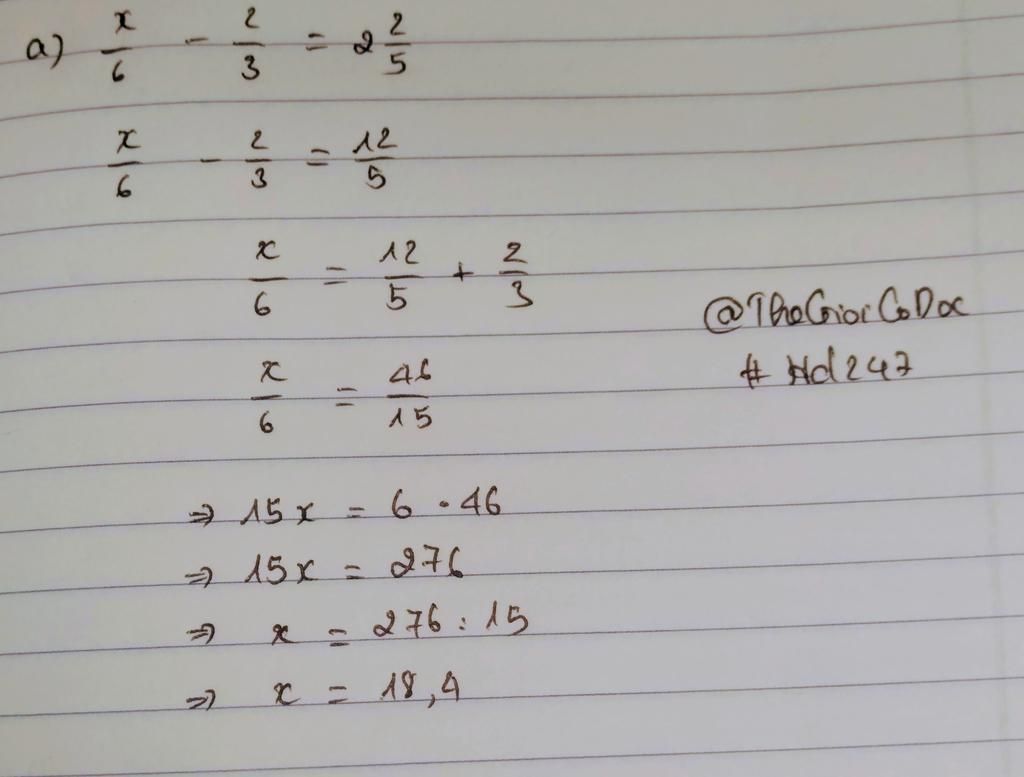 a) x/6 - 2/3 = 2 2/5
x/6 - 2/3 = 12/5
x/6 = 12/5 + 2/3
x/6 = 46/15
⇒ 15x = 6 . 46
⇒ 15x = 276
⇒ x = 276 : 15
⇒ x = 18,4
@TheGioiCoDoc
# Hd247